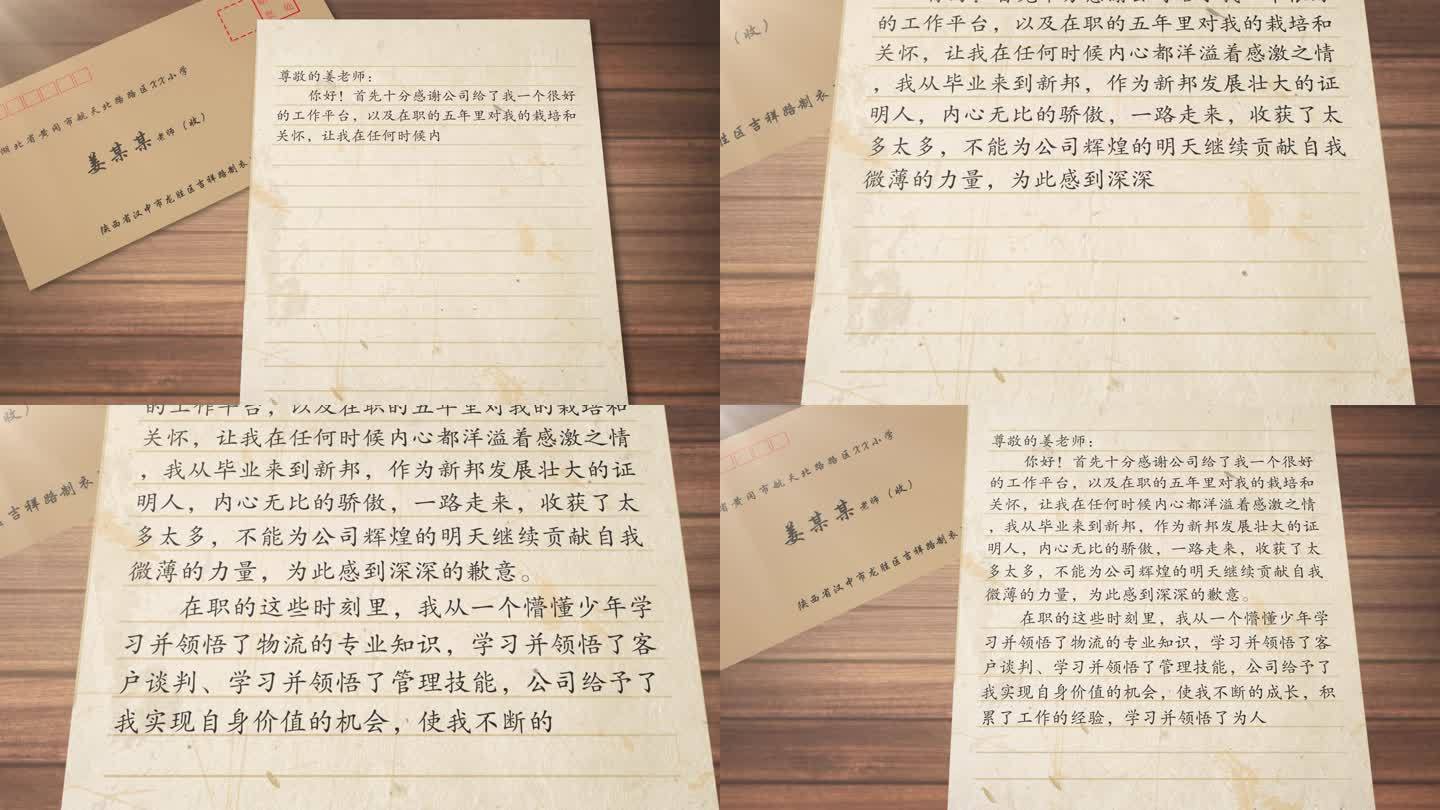 湖北省黄冈市航天北路路区XX小学
姜某某老师（收）
陕西省汉中市龙胜区吉祥路制衣
尊敬的姜老师：
你好！首先十分感谢公司给了我一个很好
的工作平台，以及在职的五年里对我的栽培和
关怀，让我在任何时候内
（收）
胜区吉祥路制衣
的工作平台，以及在职的五年里对我的栽培和
关怀，让我在任何时候内心都洋溢着感激之情
，我从毕业来到新邦，作为新邦发展壮大的证
明人，内心无比的骄傲，一路走来，收获了太
多太多，不能为公司辉煌的明天继续贡献自我
微薄的力量，为此感到深深
收）
区吉祥路制衣
的工作平台，以及在职的五年里对我的栽培和
关怀，让我在任何时候内心都洋溢着感激之情
，我从毕业来到新邦，作为新邦发展壮大的证
明人，内心无比的骄傲，一路走来，收获了太
多太多，不能为公司辉煌的明天继续贡献自我
微薄的力量，为此感到深深的歉意。
在职的这些时刻里，我从一个懵懂少年学
习并领悟了物流的专业知识，学习并领悟了客
户谈判、学习并领悟了管理技能，公司给予了
我实现自身价值的机会，使我不断的
省黄冈市航天北路路区XX小学
姜某某老师（收）
陕西省汉中市龙胜区吉祥路制衣
尊敬的姜老师：
你好！首先十分感谢公司给了我一个很好
的工作平台，以及在职的五年里对我的栽培和
关怀，让我在任何时候内心都洋溢着感激之情
，我从毕业来到新邦，作为新邦发展壮大的证
明人，内心无比的骄傲，一路走来，收获了太
多太多，不能为公司辉煌的明天继续贡献自我
微薄的力量，为此感到深深的歉意。
在职的这些时刻里，我从一个懵懂少年学
习并领悟了物流的专业知识，学习并领悟了客
户谈判、学习并领悟了管理技能，公司给予了
我实现自身价值的机会，使我不断的成长，积
累了工作的经验，学习并领悟了为人